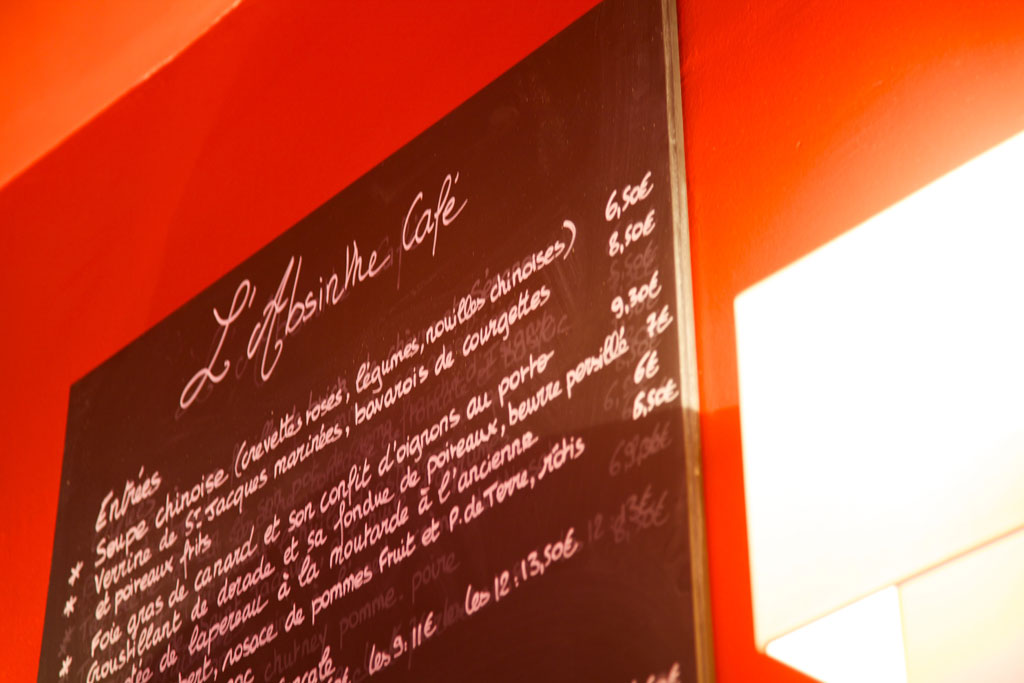 L'Absinthe Café
Entrées
* Soupe chinoise (crevettes roses, légumes, nouilles chinoises) 6,50€
* Verrine de St Jacques marinées, bavarois de courgettes 8,50€
et poireaux frits
* Foie gras de canard et son confit d'oignons au porto 9,30€
Croustillant de dorade et sa fondue de poireaux, beurre persillé 7€
de lapereau à la moutarde à l'ancienne 6€
rosace de pommes Fruit et P. de Terre, rôtis 6,50€
les 9: 11€ les 12: 13,50€